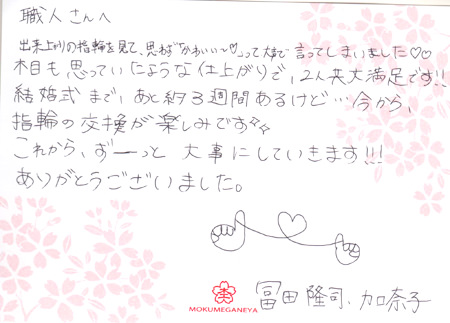 職人さんへ
出来上りの指輪を見て、思わず"かわいい～♡"って大声で言ってしまいました♡♡
木目も思っていたような仕上がりで、2人共大満足です!!
結婚式まで、あと約3週間あるけど…今から、
指輪の交換が楽しみです✧✧
これから、ずーっと大事にしていきます!!!
ありがとうございました。
冨田 隆司、加奈子
MOKUMEGANEYA